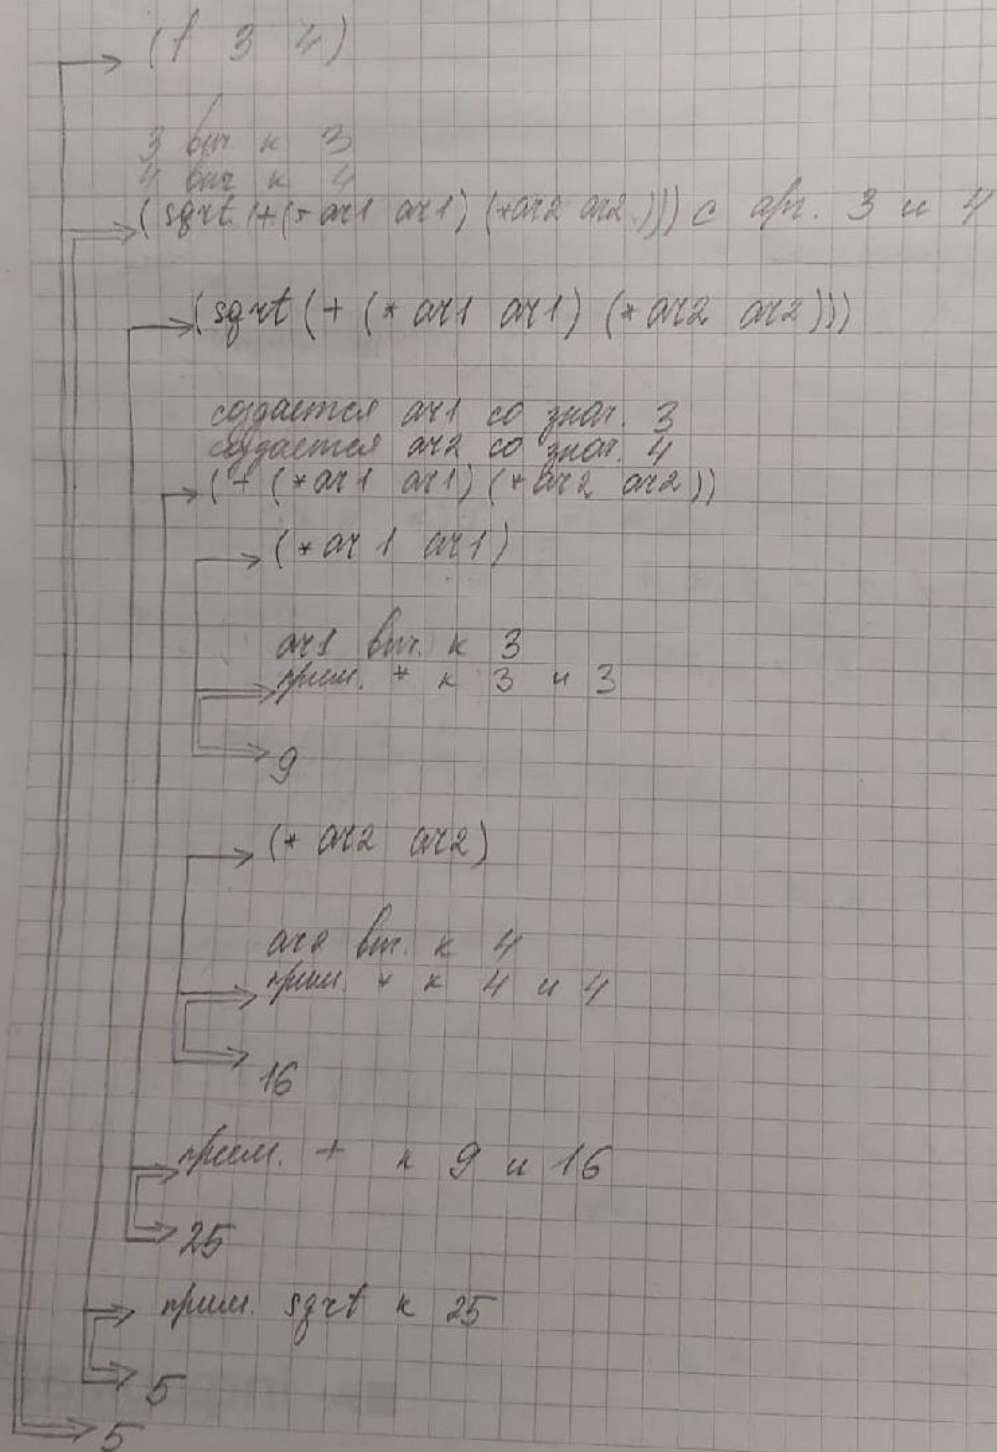 (f 3 4)
3 выч к 3
4 выч к 4
(sqrt (+ (* ar1 ar1) (*ar2 ar2))) с арг. 3 и 4
(sqrt (+ (* ar1 ar1) (* ar2 ar2)))
создается ar1 со знач. 3
создается ar2 со знач. 4
(+ (*ar1 ar1) (*ar2 ar2))
(*ar1 ar1)
ar1 выч. к 3
прим. * к 3 и 3
9
(* ar2 ar2)
ar2 выч. к 4
прим. * к 4 и 4
16
прим. + к 9 и 16
25
прим. sqrt к 25
5
5